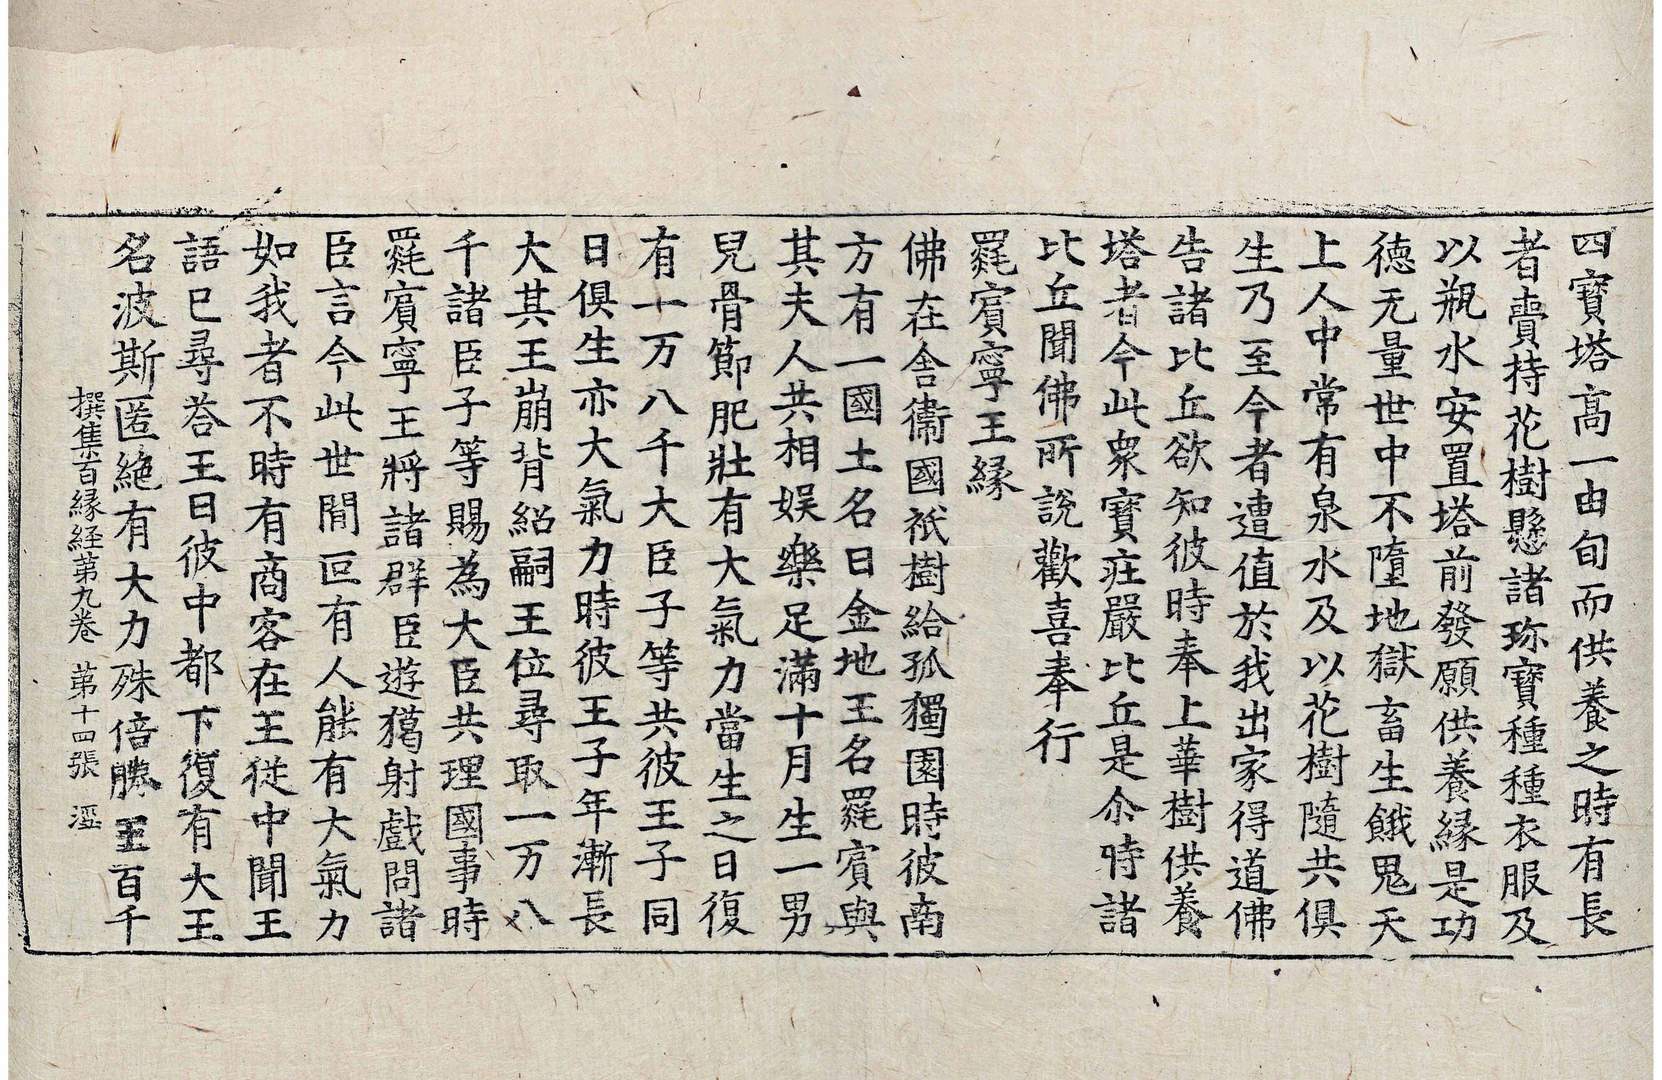 四寶塔高一由旬而供養之時有長
者賷持花樹懸諸珎寶種種衣服及
以瓶水安置塔前發願供養縁是功
德无量世中不墮地獄畜生餓鬼天
上人中常有泉水及以花樹隨共俱
生乃至今者遭值於我出家得道佛
告諸比丘欲知彼時奉上華樹供養
塔者今此衆寶莊嚴比丘是尒時諸
比丘聞佛所說歡喜奉行
罽賔寧王縁
佛在舍衞國祇樹給孤獨園時彼南
方有一國土名曰金地王名罽賔與
其夫人共相娱樂足滿十月生一男
兒骨節肥壯有大氣力當生之日復
有十万八千大臣子等共彼王子同
日俱生亦大氣力時彼王子年漸長
大其王崩背紹嗣王位尋取一万八
千諸臣子等賜為大臣共理國事時
罽賔寧王將諸群臣遊獦射戲問諸
臣言今此世間叵有人能有大氣力
如我者不時有商客在王從中聞王
語已尋荅王曰彼中都下復有大王
名波斯匿絶有大力殊倍勝王百千
撰集百縁経第九卷 第十四張 溫